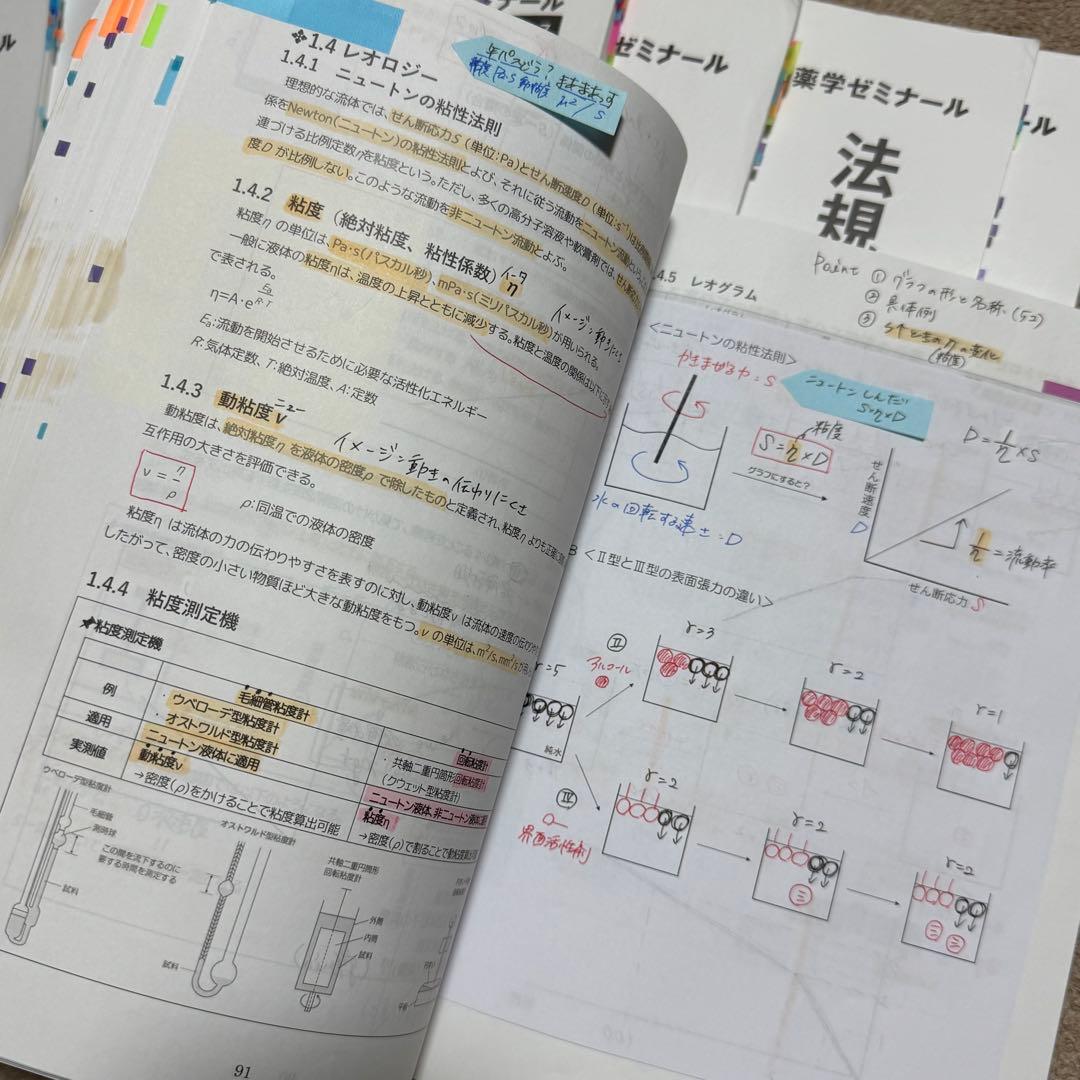 ❖1.4 レオロジー
1.4.1 ニュートンの粘性法則
理想的な流体では、せん断応力S (単位:Pa)とせん断速度D (単位:s⁻¹)は比例
係をNewton(ニュートン)の粘性法則とよび、それに従う流動をニュートン流動という
連づける比例定数ηを粘度という。ただし、多くの高分子溶液や軟膏剤では、せん断応力
度Dが比例しない。このような流動を非ニュートン流動とよぶ。
1.4.2 粘度 (絶対粘度、粘性係数) η
イータ
粘度ηの単位は、Pa・s(パスカル秒)、mPa・s(ミリパスカル秒)が用いられる。
一般に液体の粘度ηは、温度の上昇とともに減少する。粘度と温度の関係は以下
で表される。
イメージ:動きにくさ
η=A・e Ea/R・T
Ea:流動を開始させるために必要な活性化エネルギー
R:気体定数、T:絶対温度、A:定数
1.4.3 動粘度 ν
ニュー
イメージ:動きの伝わりにくさ
動粘度は、絶対粘度ηを液体の密度ρで除したものと定義され、粘度ηよりも正確に
互作用の大きさを評価できる。
ν = η/ρ
ρ:同温での液体の密度
粘度ηは流体の力の伝わりやすさを表すのに対し、動粘度νは流体の速度の伝わりやす
したがって、密度の小さい物質ほど大きな動粘度をもつ。νの単位は、m²/s、mm²/sが用
1.4.4 粘度測定機
粘度測定機
毛細管粘度計
回転粘度計
例
・ウベローデ型粘度計
・オストワルド型粘度計
・共軸二重円筒形回転粘度計
(クウェット型粘度計)
適用
ニュートン液体に適用
ニュートン液体、非ニュートン液体に適
実測値
動粘度ν
→密度(ρ)をかけることで粘度算出可能
粘度η
→密度(ρ)で割ることで動粘度算出
ウベローデ型粘度計
毛細管
測時球
この間を流下するのに
要する時間を測定する
試料
オストワルド型粘度計
試料
共軸二重円筒形
回転粘度計
外筒
内筒
試料
平板
91
ゼミナール
薬学ゼミナール
法規
1.4.5 レオグラム
Point ① グラフの形と名称 (52)
② 具体例
③ S↑ときのηの変化
(粘度)
<ニュートンの粘性法則>
かきまぜる力=S
ニュートンしんだ
S=η×D
粘度
S=η×D
グラフにすると?
水の回転する速さ=D
D=1/η×S
せん断速度 D
1/η=流動率
せん断応力 S
<Ⅱ型とⅢ型の表面張力の違い>
r=5
純水
Ⅱ
アルコール
r=3
r=2
r=1
Ⅳ
界面活性剤
r=2
r=2
r=2